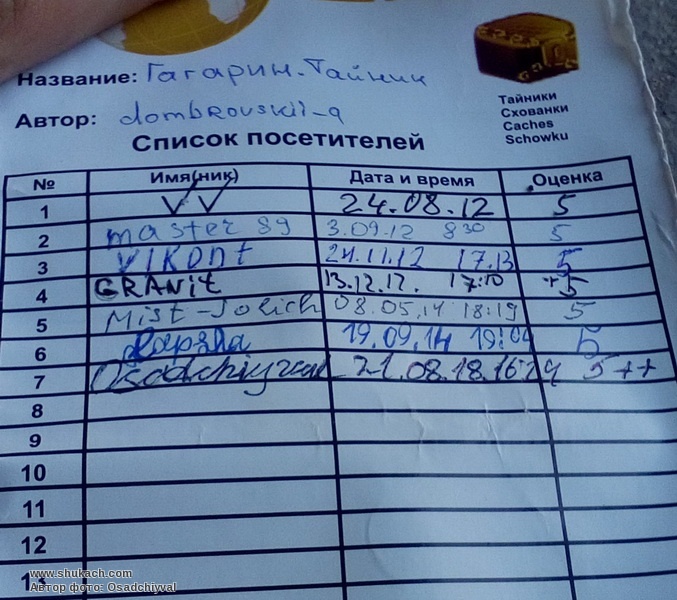 Название: Гагарин-Тайник
Автор: dombrovskii-a
Тайники
Схованки
Caches
Schowku
Список посетителей
№ Имя(ник) Дата и время Оценка
1 VV 24.08.12 5
2 master 89 3.09.12 8 30 5
3 VIKont 24.11.12 17.13 5
4 GRANit 13.12.12. 17:10 +5
5 Mist-Jolich 08.05.14 18:19 5
6 19.09.14 19:04 5
7 Osadchiyval 21.08.18. 16 29 5++
8
9
10
11
12
13
www.shukach.com
Автор фото: Osadchiyval